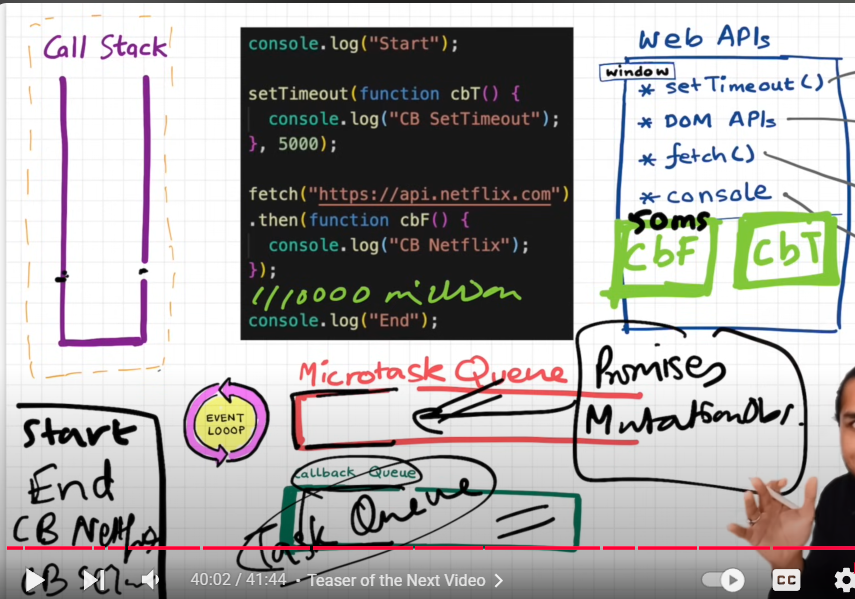 Call Stack
console.log("Start");
setTimeout(function cbT() {
console.log("CB SetTimeout");
}, 5000);
fetch("https://api.netflix.com")
.then(function cbF() {
console.log("CB Netflix");
});
million
console.log("End");
Web APIs
window
* setTimeout()
* DOM APIs
* fetch()
* console
50ms
CbF
CbT
Microtask Queue
Promises
MutationObs.
EVENT
LOOOP
Callback Queue
Task Queue
Start
End
CB Netflix
CB
40:02 / 41:44 • Teaser of the Next Video >
CC